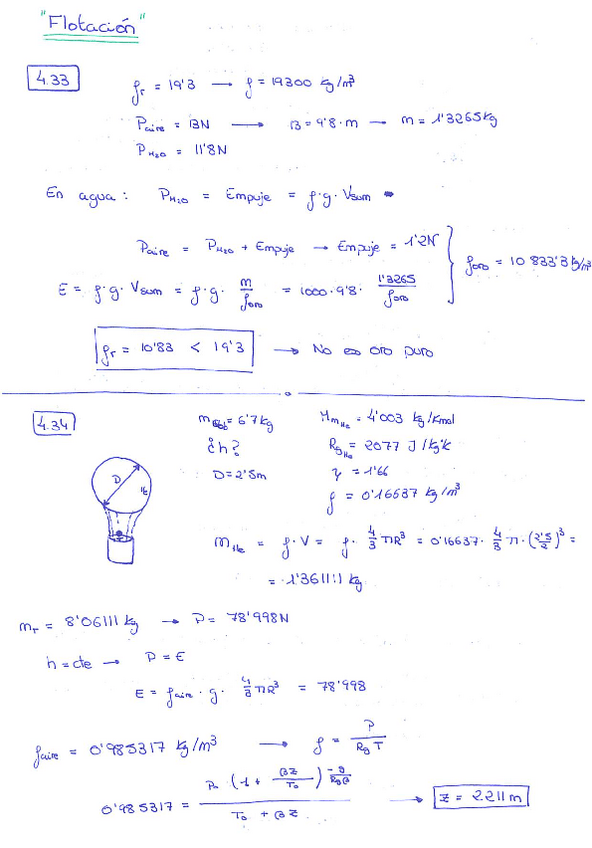 "Flotación"
4.33
ρr = 19'3 → ρ = 19300 kg/m³
Paire = 13N → 13 = 9'8·m → m = 1'3265kg
PH2O = 11'8N
En agua: PH2O = Empuje = ρ·g·Vsum
Paire = PH2O + Empuje → Empuje = 1'2N
ρoro = 10833'3 kg/m³
E = ρ·g·Vsum = ρ·g· m/ρoro = 1000·9'8· 1'3265/ρoro
ρr = 10'83 < 19'3 → No es oro puro
4.34
= 6'7kg MmHe = 4'003 kg/Kmol
¿h? RgHe = 2077 J/kg·k
D = 2'5m γ = 1'66
ρ = 0'16637 kg/m³
D He
mHe = ρ·V = ρ· 4/3 πR³ = 0'16637· 4/3 π·(2'5/2)³ =
= 1'36111 kg
mT = 8'06111 kg → P = 78'998N
h = cte → P = E
E = ρaire · g · 4/3 πR³ = 78'998
ρaire = 0'985317 kg/m³ → ρ = P/RgT
0'985317 = P₀ (1 + βz/T₀)^(-g/Rgβ) / T₀ + βz → z = 2211m